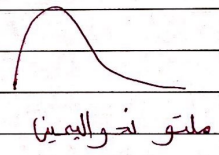 ملتو نحو اليمين